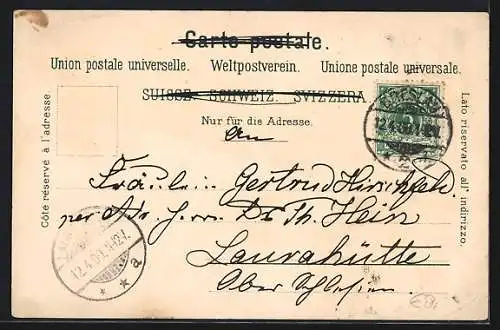 Carte postale.
Union postale universelle. Weltpostverein. Unione postale universale.
SUISSE. SCHWEIZ. SVIZZERA
Nur für die Adresse.
Côté réservé à l'adresse
Lato riservato all' indirizzo.
An
BRESLAU
Fräulein Gertrud Hirschfeld.
per Adr. Herrn Dr. Th. Hein
Laurahütte
Ober Schlesien.
a